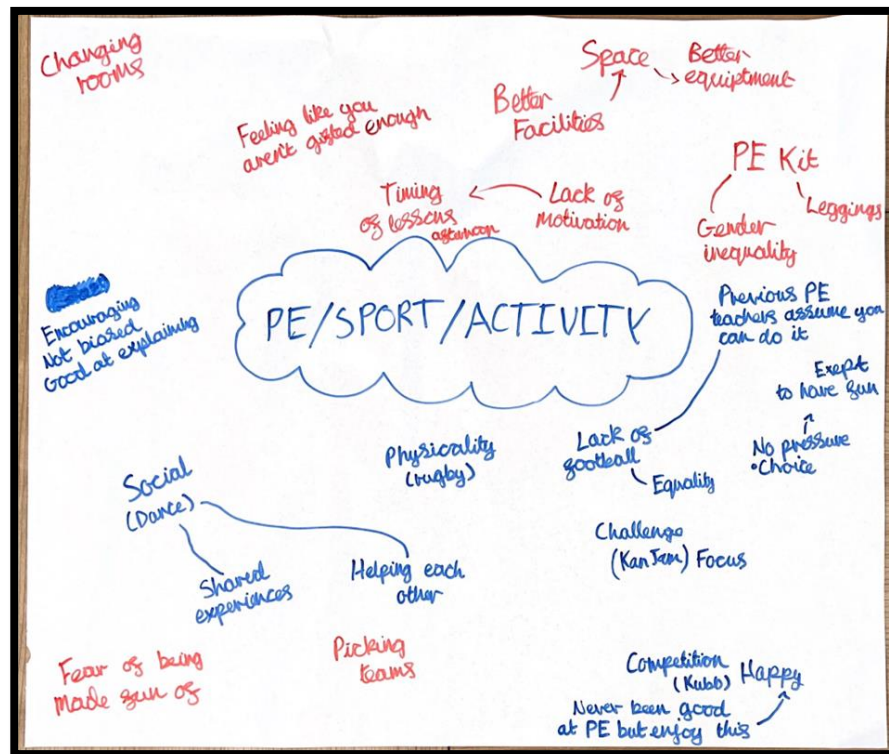 Changing
rooms
Space
Better
equiptment
Better
Facilities
Feeling like you
aren't gifted enough
PE Kit
Leggings
Gender
inequality
Timing
of lessons
afternoon
Lack of
motivation
PE/SPORT/ACTIVITY
Encouraging
Not biased
Good at explaining
Previous PE
teachers assume you
can do it
Exept
to have fun
No pressure
•Choice
Physicality
(rugby)
Lack of
football
Equality
Social
(Dance)
Shared
experiences
Helping each
other
Challenge
(KanJam) Focus
Fear of being
made fun of
Picking
teams
Competition
(Kubb) Happy
Never been good
at PE but enjoy this